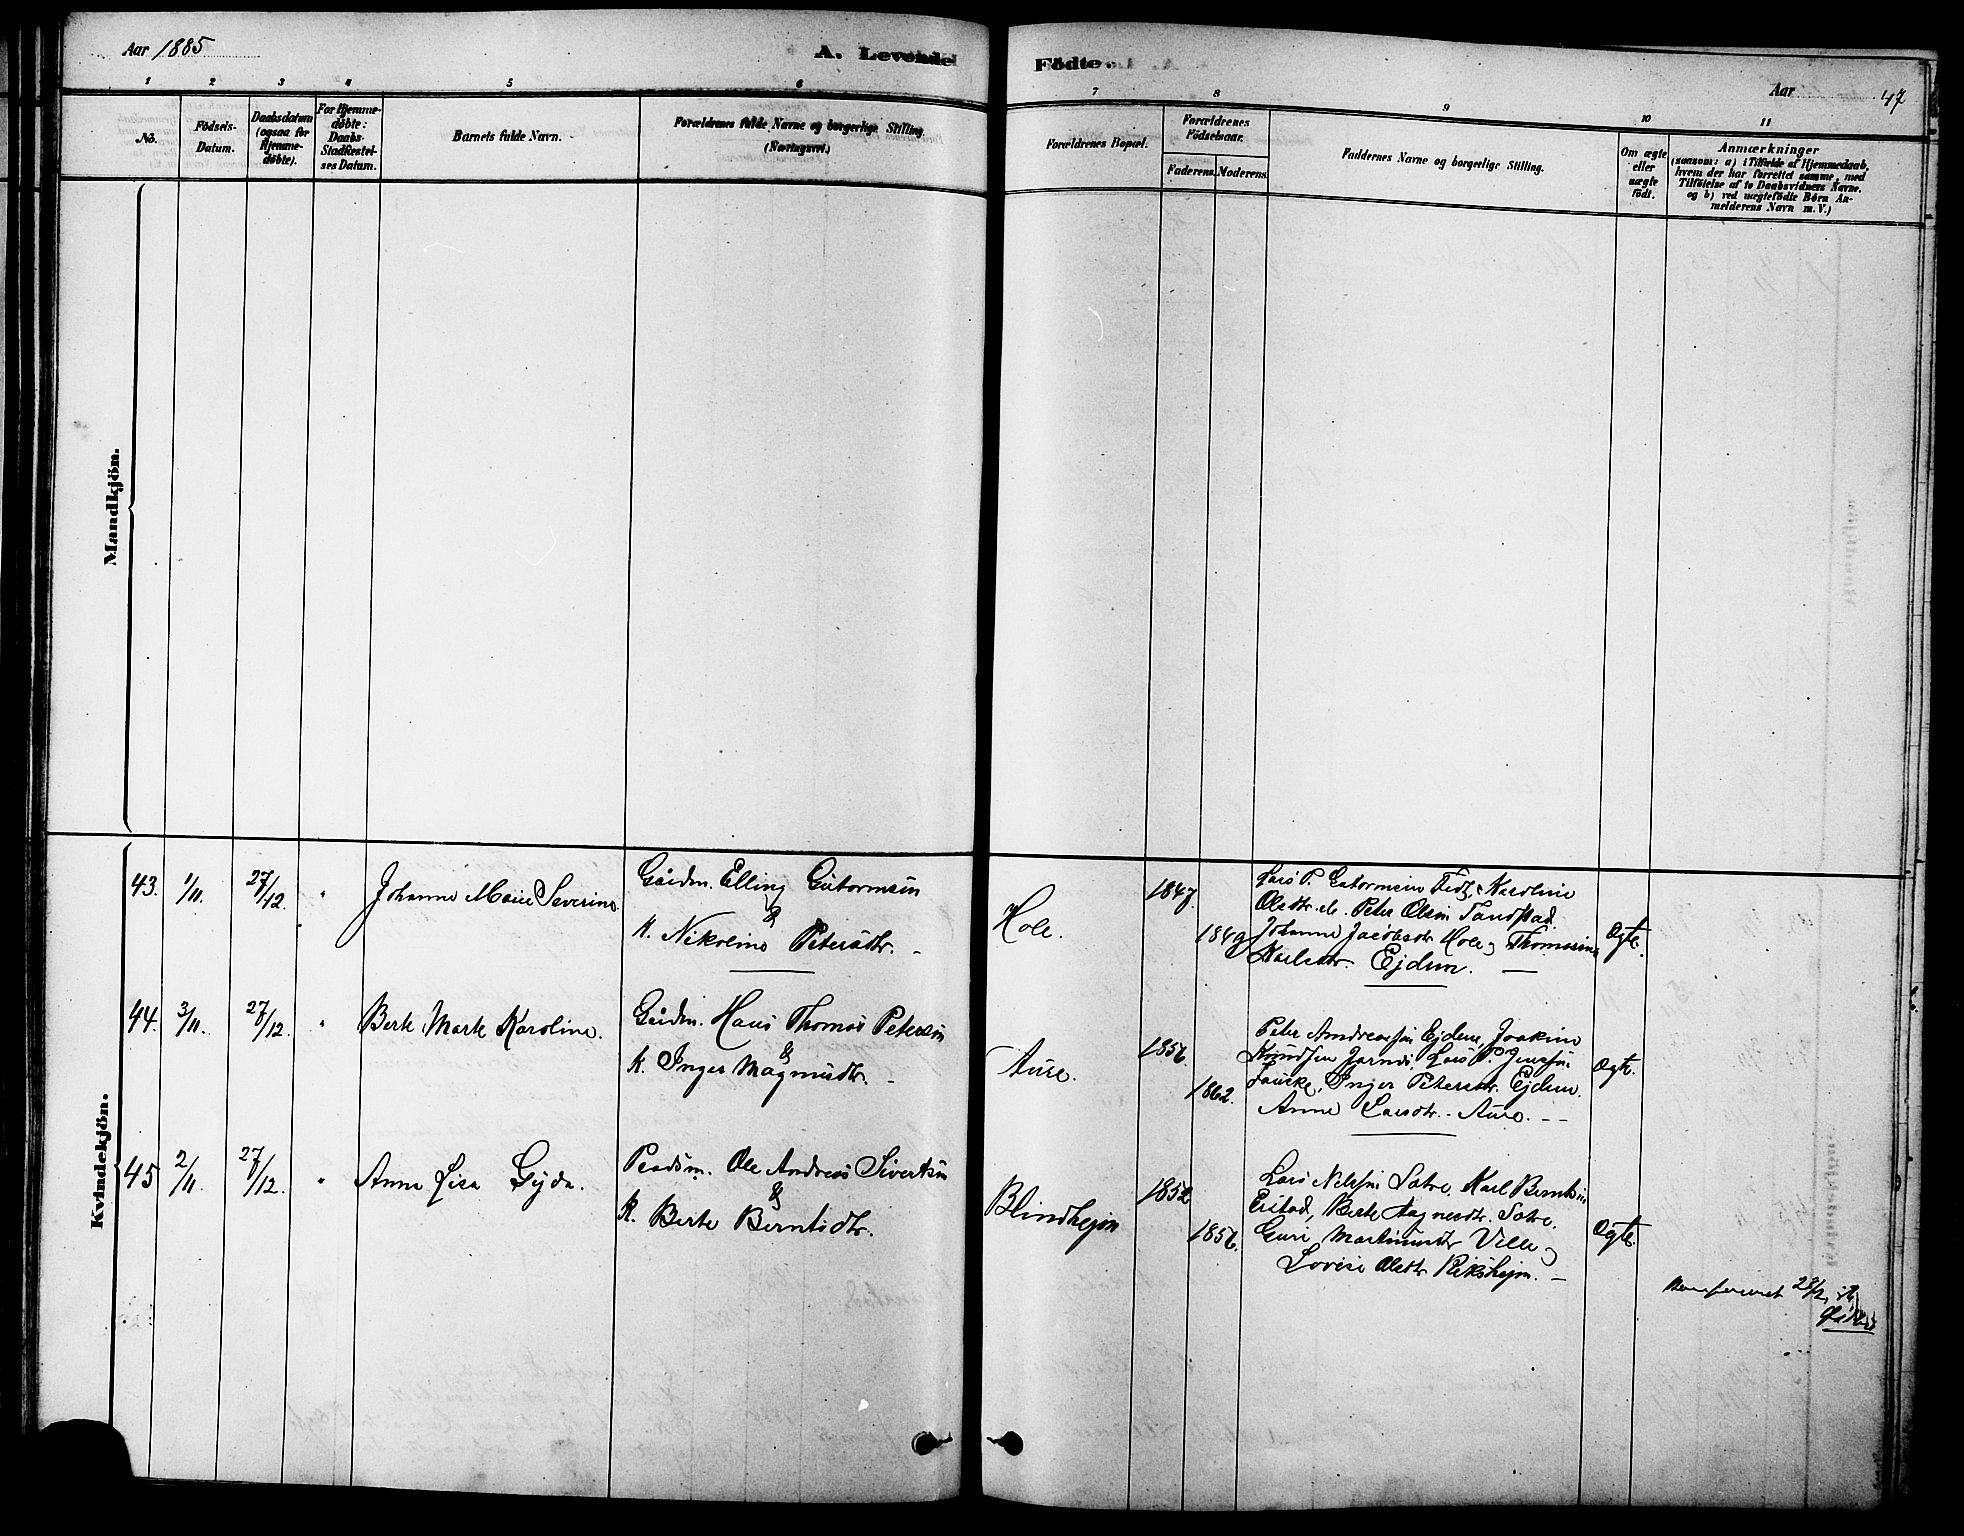 Aar 1885
A. Levende
Fødte.
Aar 47
1 2 3 4 5 6
7 8 9 10 11
No.
Födsels-
Datum.
Daabsdatum
(ogsaa for
Hjemme-
döbte).
For Hjemme-
döbte:
Daabs-
Stadfæstel-
ses Datum.
Barnets fulde Navn.
Forældrenes fulde Navne og borgerlige Stilling.
(Næringsvei.)
Forældrenes Bopæl.
Forældrenes
Födselsaar.
Faderens. Moderens.
Faddernes Navne og borgerlige Stilling.
Om ægte
eller
uægte
födt.
Anmærkninger
(saasom: a) i Tilfælde af Hjemmedaab,
hvem der har forrettet samme, med
Tilföielse af to Daabsvidners Navne.
og b) ved uægtefödte Börn An-
melderens Navn m. V.)
Mandkjön.
Kvindekjön.
43. 1/11. 27/12. " Johanne Marie Severine.
Gårdm. Elling Gutormsen
&
K. Nikoline Petersdtr. -
Hole.
1847.
1849
Lars P. Gutormsen Karoline
Olsdtr. Peter Olsen Tandstad
Johanne Jacobsdtr Hole, Thomasine
Karlsdtr. Ejdem. -
Ægte.
44. 3/11. 27/12. " Berte Marte Karoline.
Gårdm. Hans Thomas Petersen
&
K. Inger Magnusdtr. -
Aure.
1856.
1862.
Peter Andreassen Ejdem, Joakim
Knudsen Lars P. Jenssen
Inger Petersdtr. Ejdem.
Anne Larsdtr. Aure. --
Ægte.
45 2/11. 27/12. " Anna Lisa Gyda.
Pladsm. Ole Andreas Sivertsen
&
K. Berte Berntsdtr.
Blindhejm
1852
1856.
Lars Nilssen Satre, Karl Berntsen
Berte Satre.
Guri Martinusdtr Velle
Lovise Olsdtr Rikshejm. -
Ægte.
28/12